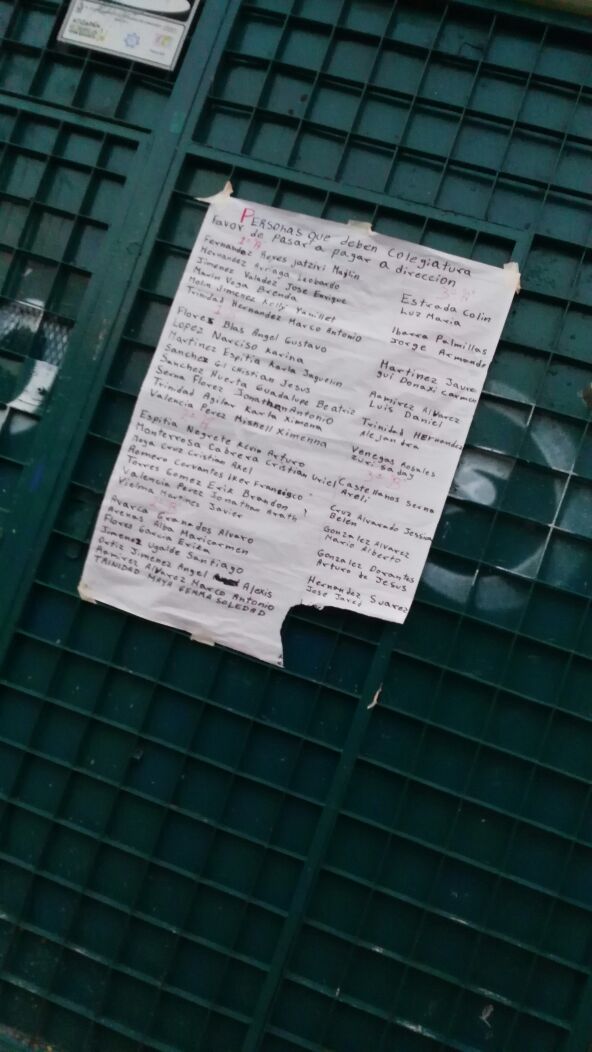 Personas que deben colegiatura
Favor de pasar a pagar a direccion
1° A
Fernandez Reres Jatziri Maylin
Hernandez Arriaga Leobardo
Jimenez Valadez Jose Enrique
Marin Vega Brenda
Mola Jimenez Kelly
Trinidad Hernandez Marco Antonio
Flores Blas Angel Gustavo
Lopez Narciso Karina
Martinez Espitia Karla Jaquelin
Sanchez Gil Christian Jesus
Sanchez Huerta Guadalupe Beatriz
Serna Florez Jonathan Antonio
Trinidad Agilar Karla Ximena
Valencia Perez Mishell Ximenna
Espitia Negrete Kevin Arturo
Monterrosa Cabrera Cristian Uriel
Moya Cruz Cristian Axel
Romero Corrantes Iker Francisco
Torres Gomez Erik Brandon
Valencia Perez Jonathan Arath
Vielma Martinez Javier
Granados Alvaro
Arenas Alba Maricarmen
Flores Garcia Ericka
Jimenez Ugalde Santiago
Ortiz Jimenez Angel Alexis
Ramirez Alvarez Marco Antonio
TRINIDAD MAYA FERMA SOLEDAD
3° A
Estrada Colin
Luz Maria
Ibarra Palmillas
Jorge Armando
Martinez Javre
gui Donaxi carmen
Ramirez Alvarez
Luis Daniel
Trinidad Hernandez
Alejandra
Venegas Rosales
Zuri Saday
3° B
Castellanos Serna
Areli
Cruz Alvarado Jessica
Belen
Gonzalez Alvarez
Mario Alberto
Gonzalez Dorantes
Arturo de Jesus
Hernandez Suarez
Jose